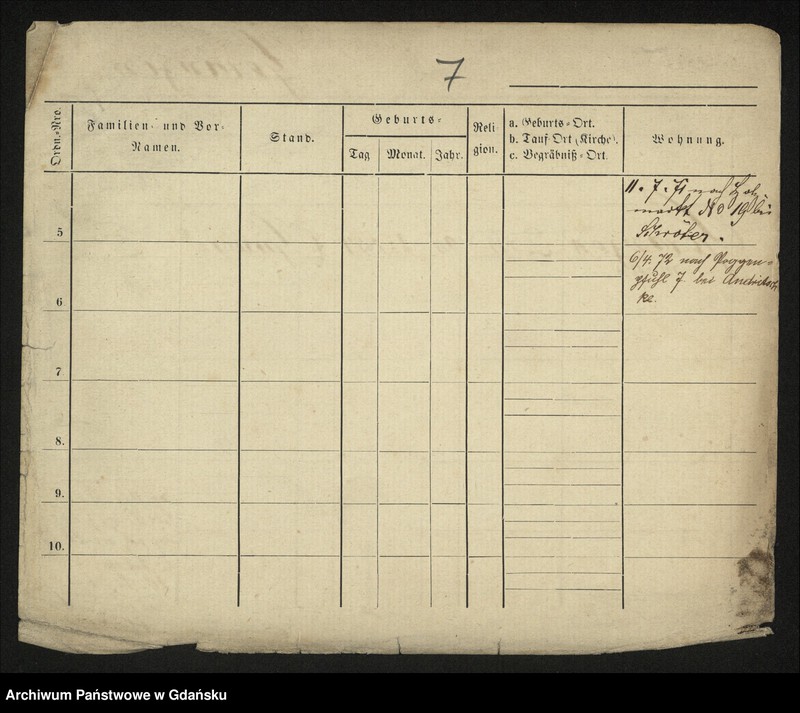 7
Ordn.-Nro.
Familien- und Vor-
Namen.
Stand.
Geburts-
Tag
Monat.
Jahr.
Reli
gion.
a. Geburts-Ort.
b. Tauf-Ort (Kirche).
c. Begräbniß-Ort.
Wohnung.
11. 7. 71 nach Holz
markt No 19 bei
Schröter.
6/4. 72 nach Poggen-
pfuhl 7 bei
5
6
7
8.
9.
10.
Archiwum Państwowe w Gdańsku